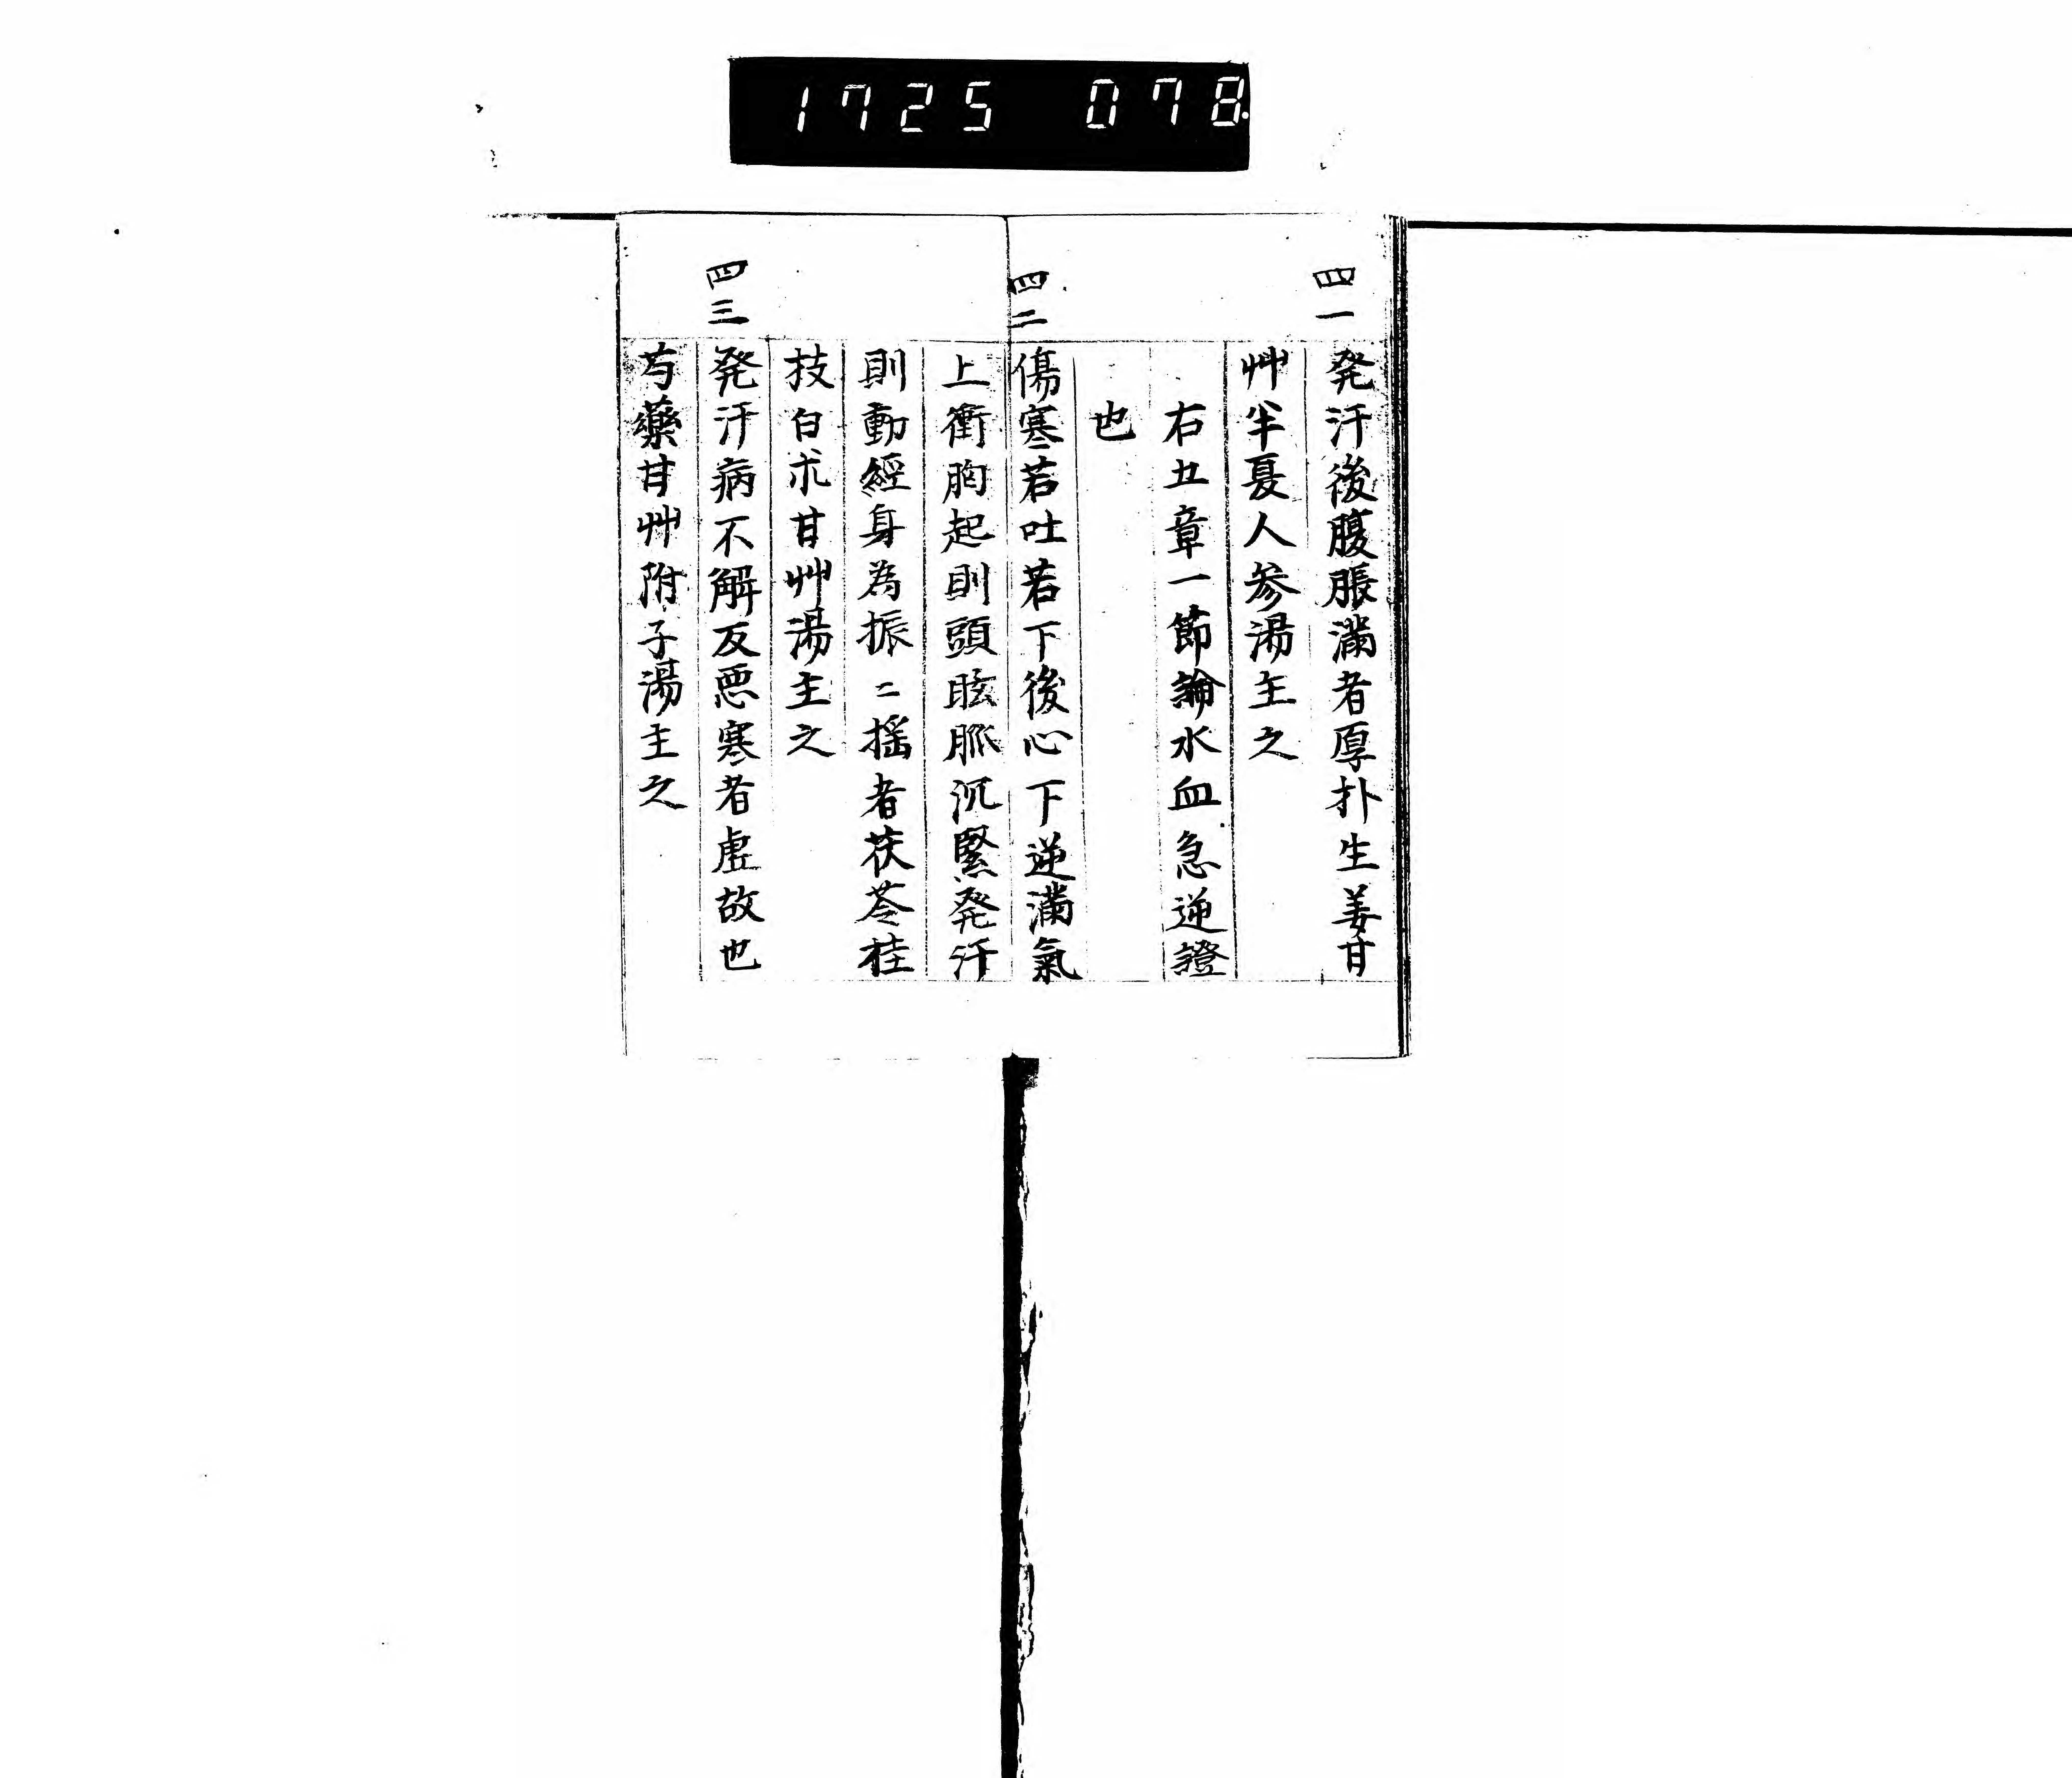 1725 078
四一
発汗後腹脹滿者厚朴生姜甘
艸半夏人参湯主之
右五章一節論水血急逆證
也
四二
傷寒若吐若下後心下逆滿氣
上衝胸起則頭眩脈沉緊発汗
則動經身為振〻揺者茯苓桂
技白朮甘艸湯主之
四三
発汗病不解反悪寒者虚故也
芍藥甘艸附子湯主之